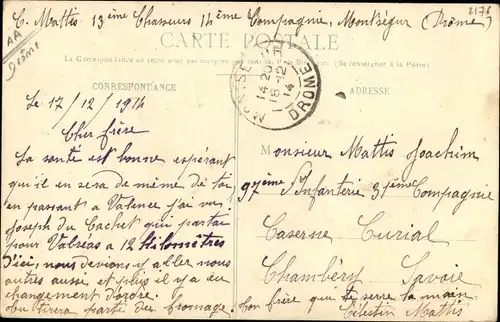 C. Mattis 13ème Chasseurs 14ème Compagnie, Montségur (Drôme)
2176
AA
Drôme
CARTE POSTALE
La Correspondance au recto n'est pas (Se renseigner à la Poste)
CORRESPONDANCE
ADRESSE
14 20
18-12
14
DROME
Le 17/12/1914
Cher frère
La santé est bonne espérant
qu'il en sera de même de toi,
en passant à Valence j'ai vu
Joseph du Cachet qui partait
pour Valréas à 12 Kilomètres
D'ici, nous devions y aller nous
autres aussi et puis il y a eu
changement d'ordre.
Tu tirera parti des fromage.
Monsieur Mattis Joachim
97ème d'Infanterie 31ème Compagnie
Caserne Curial
Chambéry Savoie
Ton frère qui te serre la main
Célestin Mattis